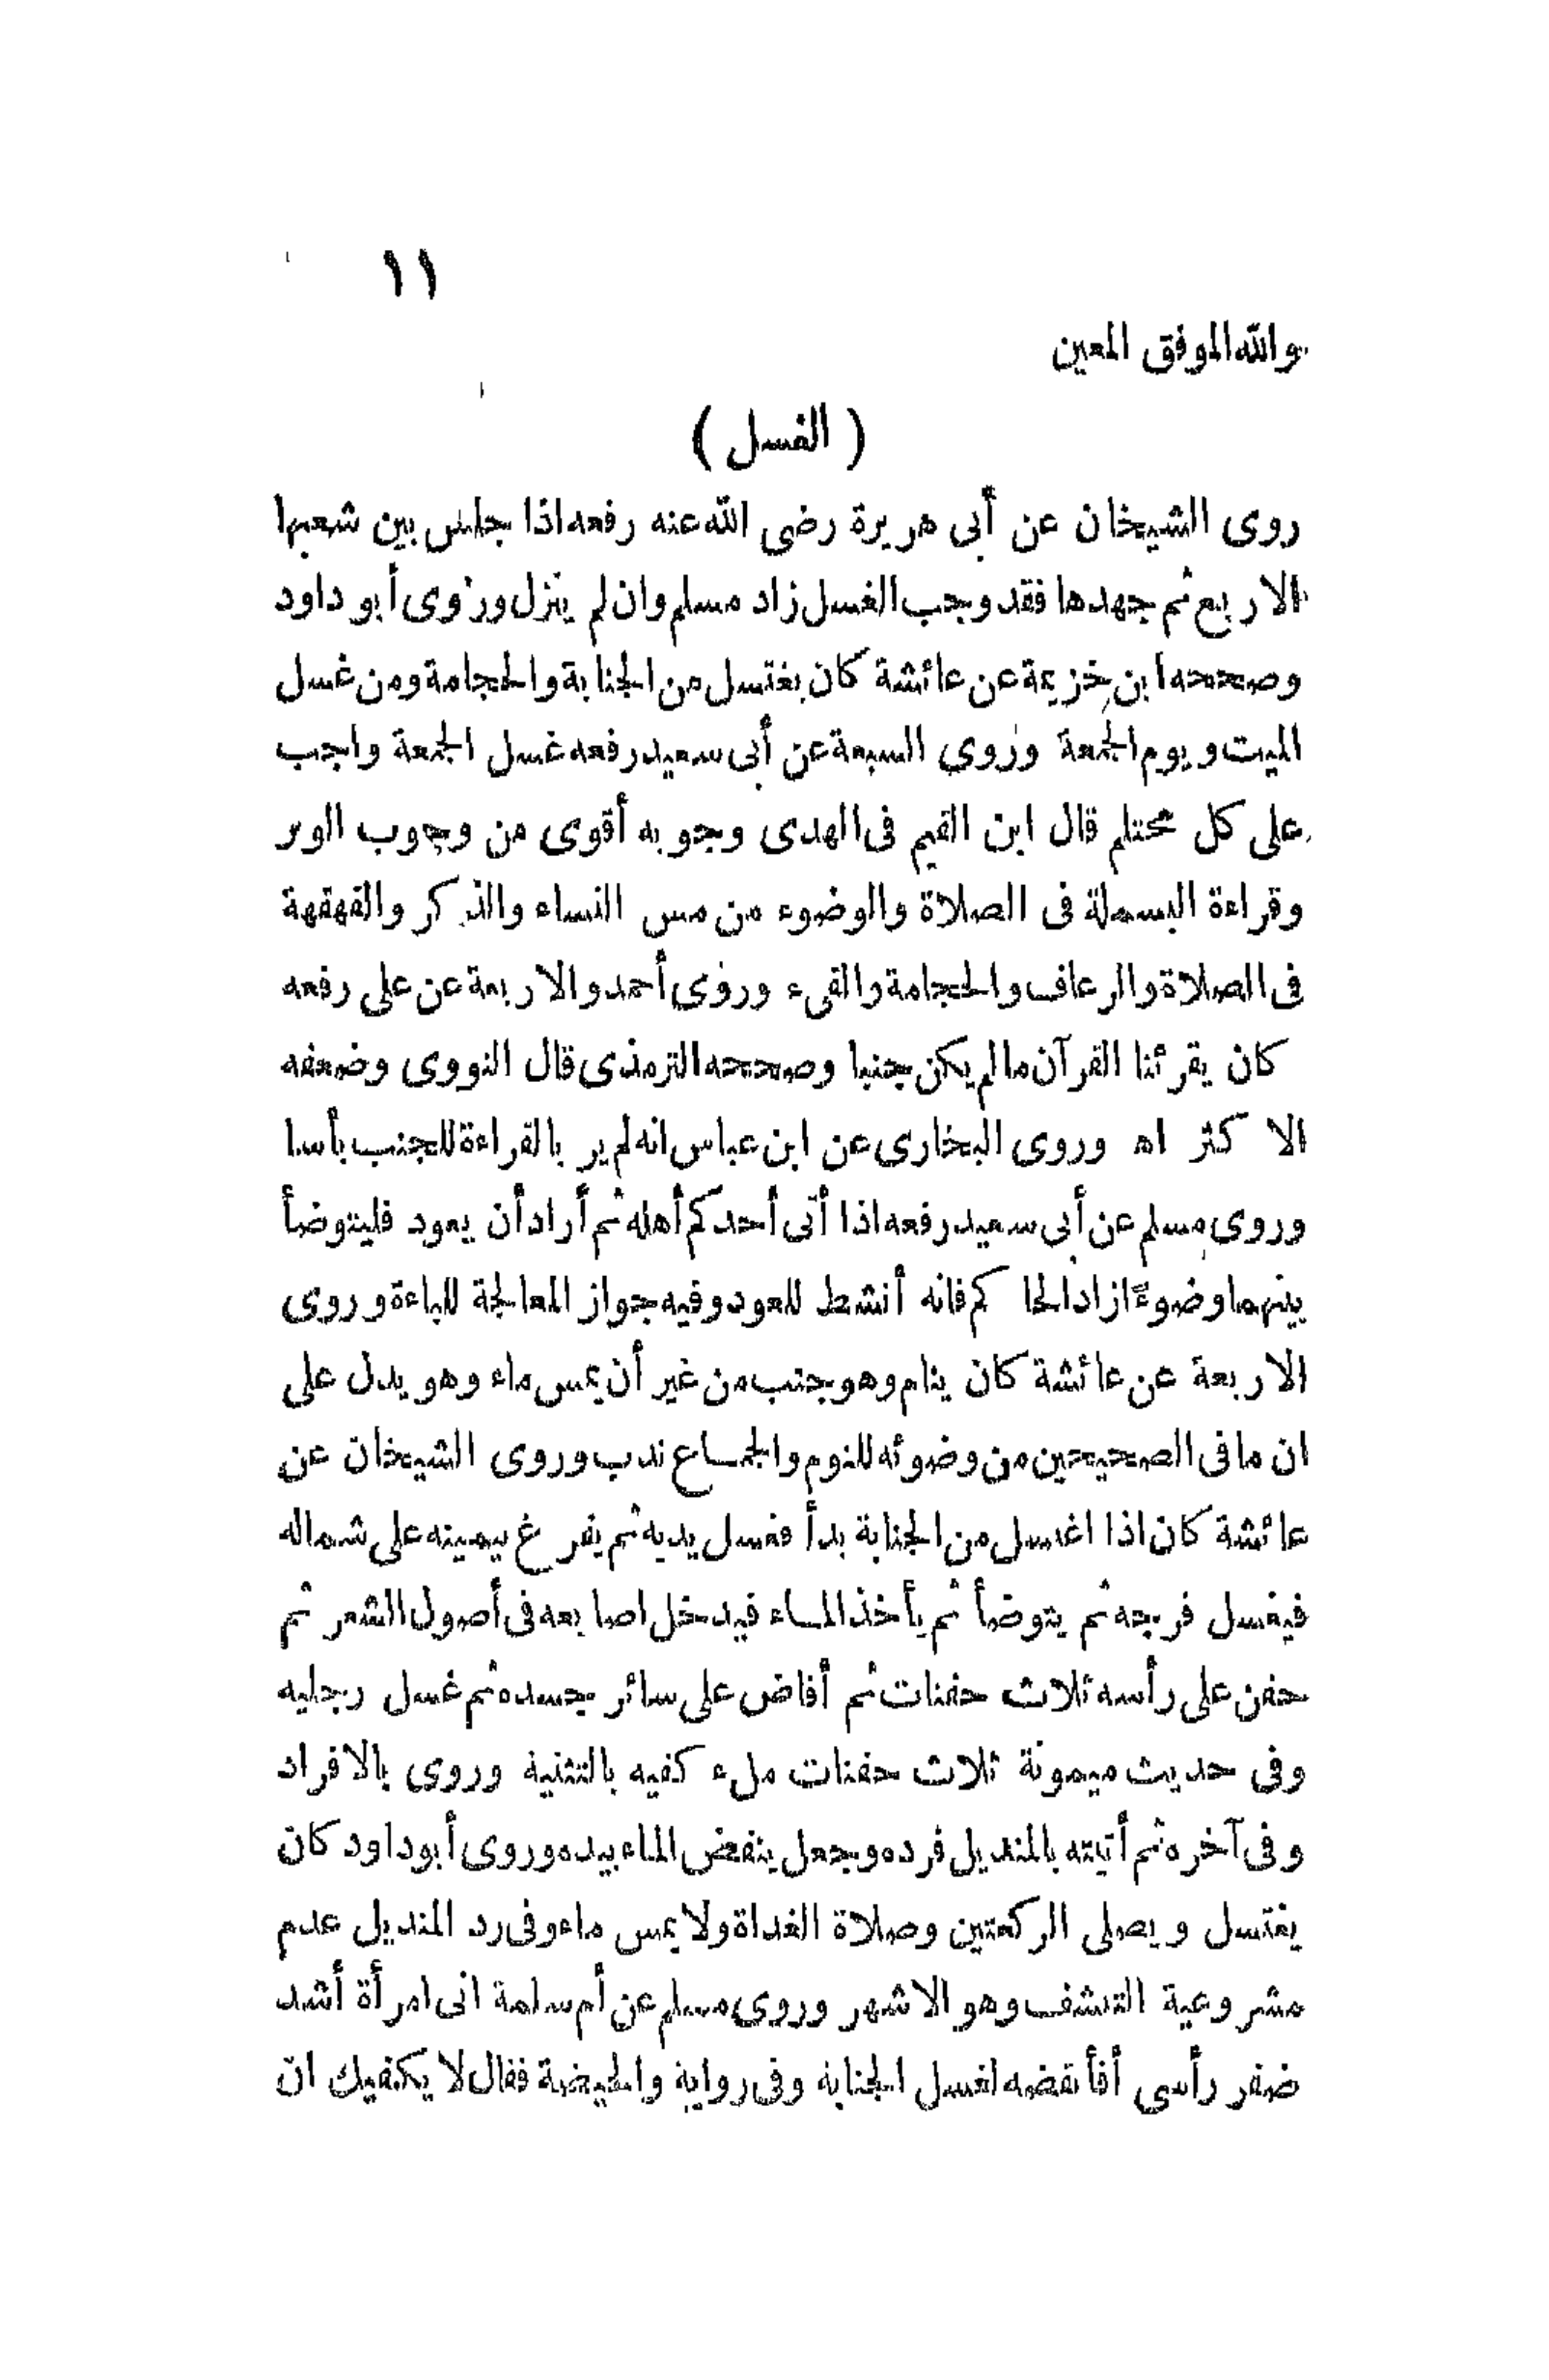 ١١
والله الموفق المعين
( الغسل )
روى الشيخان عن أبى هريرة رضى الله عنه رفعه اذا جلس بين شعبها
الاربع ثم جهدها فقد وجب الغسل زاد مسلم وان لم ينزل وروى أبو داود
وصححه ابن خزيمة عن عائشة كان يغتسل من الجنابة والحجامة ومن غسل
الميت ويوم الجمعة وروى السبعة عن أبى سعيد رفعه غسل الجمعة واجب
على كل محتلم قال ابن القيم فى الهدى وجوبه أقوى من وجوب الوتر
وقراءة البسملة فى الصلاة والوضوء من مس النساء والذكر والقهقهة
فى الصلاة والرعاف والحجامة والقىء وروى أحمد والاربعة عن على رفعه
كان يقرئنا القرآن ما لم يكن جنبا وصححه الترمذى قال النووى وضعفه
الاكثر اه وروى البخارى عن ابن عباس انه لم ير بالقراءة للجنب بأسا
وروى مسلم عن أبى سعيد رفعه اذا أتى أحدكم أهله ثم أراد أن يعود فليتوضأ
بينهما وضوءًا زاد الحاكم فانه أنشط للعود وفيه جواز المعالجة للباءة وروى
الاربعة عن عائشة كان ينام وهو جنب من غير أن يمس ماء وهو يدل على
ان ما فى الصحيحين من وضوئه للنوم والجماع ندب وروى الشيخان عن
عائشة كان اذا اغتسل من الجنابة بدأ فغسل يديه ثم يفرغ بيمينه على شماله
فيغسل فرجه ثم يتوضأ ثم يأخذ الماء فيدخل اصابعه فى أصول الشعر ثم
حفن على رأسه ثلاث حفنات ثم أفاض على سائر جسده ثم غسل رجليه
وفى حديث ميمونة ثلاث حفنات ملء كفيه بالتثنية وروى بالافراد
وفى آخره ثم أتيته بالمنديل فرده وجعل ينفض الماء بيده وروى أبو داود كان
يغتسل ويصلى الركعتين وصلاة الغداة ولا يمس ماء وفى رد المنديل عدم
مشروعية التنشف وهو الاشهر وروى مسلم عن أم سلمة انى امرأة أشد
ضفر رأسى أفأنقضه لغسل الجنابة وفى رواية والحيضة فقال لا يكفيك ان